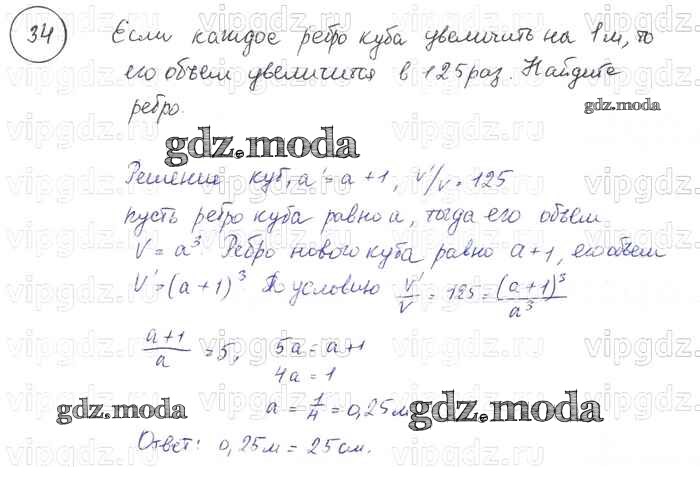 34
Если каждое ребро куба увеличить на 1 м, то
его объем увеличится в 125 раз. Найдите
ребро.
gdz.moda
gdz.moda
Решение куб, a' = a + 1, V'/V = 125
пусть ребро куба равно a, тогда его объем
V = a³ Ребро нового куба равно a + 1, его объем
V' = (a + 1)³ По условию V'/V = 125 = (a + 1)³/a³
(a + 1)/a = 5, 5a = a + 1
4a = 1
a = 1/4 = 0,25 м
gdz.moda
gdz.moda
Ответ: 0,25 м = 25 см.
vipgdz.ru